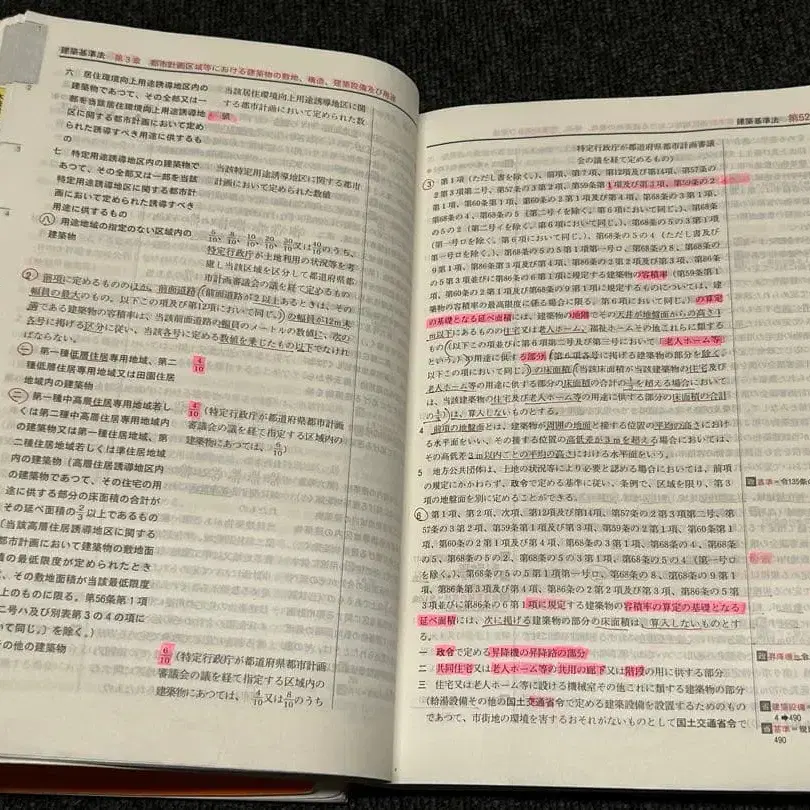 建築基準法 第3章 都市計画区域等における建築物の敷地、構造、建築設備及び用途
六 居住環境向上用途誘導地区内の
建築物であつて、その全部又は一
部を当該居住環境向上用途誘導地
区に関する都市計画において定め
られた誘導すべき用途に供するも
の
当該居住環境向上用途誘導地区に関
する都市計画において定められた数
値
七 特定用途誘導地区内の建築物で
あつて、その全部又は一部を当該
特定用途誘導地区に関する都市計
画において定められた誘導すべき
用途に供するもの
当該特定用途誘導地区に関する都市
計画において定められた数値
八 用途地域の指定のない区域内の
建築物
5/10、8/10、10/10、20/10、30/10又は40/10のうち、
特定行政庁が土地利用の状況等を考
慮し当該区域を区分して都道府県都
市計画審議会の議を経て定めるもの
2 前項に定めるもののほか、前面道路(前面道路が2以上あるときは、その
幅員の最大のもの。以下この項及び第12項において同じ。)の幅員が12m未
満である建築物の容積率は、当該前面道路の幅員のメートルの数値に、次の
各号に掲げる区分に従い、当該各号に定める数値を乗じたもの以下でなけれ
ばならない。
一 第一種低層住居専用地域、第二
種低層住居専用地域又は田園住居
地域内の建築物
4/10
二 第一種中高層住居専用地域若し
くは第二種中高層住居専用地域内
の建築物又は第一種住居地域、第
二種住居地域若しくは準住居地域
内の建築物(高層住居誘導地区内
の建築物であつて、その住宅の用
途に供する部分の床面積の合計が
その延べ面積の2/3以上であるもの
(当該高層住居誘導地区に関する
都市計画において建築物の敷地面
積の最低限度が定められたとき
は、その敷地面積が当該最低限度
以上のものに限る。第56条第1項
第二号ハ及び別表第3の4の項に
おいて同じ。)を除く。)
4/10(特定行政庁が都道府県都市計画
審議会の議を経て指定する区域内の
建築物にあつては、6/10)
その他の建築物
6/10(特定行政庁が都道府県都市計画
審議会の議を経て指定する区域内の
建築物にあつては、4/10又は8/10のうち
建築基準法 第52
特定行政庁が都道府県都市計画審議
会の議を経て定めるもの)
3 第1項(ただし書を除く。)、前項、第7項、第12項及び第14項、第57条の
2第3項第二号、第57条の3第2項、第59条第1項及び第3項、第59条の2
第1項、第60条第1項、第60条の2第1項及び第4項、第68条の3第1項、
第68条の4、第68条の5(第二号イを除く。第6項において同じ。)、第68条
の5の2(第二号イを除く。第6項において同じ。)、第68条の5の3第1項
(第一号ロを除く。第6項において同じ。)、第68条の5の4(ただし書及び
第一号ロを除く。)、第68条の5の5第1項第一号ロ、第68条の8、第68条の
9第1項、第86条第3項及び第4項、第86条の2第2項及び第3項、第86条
の5第3項並びに第86条の6第1項に規定する建築物の容積率(第59条第1
項、第60条の2第1項及び第68条の9第1項に規定するものについては、建
築物の容積率の最高限度に係る場合に限る。第6項において同じ。)の算定
の基礎となる延べ面積には、建築物の地階でその天井が地盤面からの高さ1
m以下にあるものの住宅又は老人ホーム、福祉ホームその他これらに類する
もの(以下この項並びに第6項第二号及び第三号において「老人ホーム等」
という。)の用途に供する部分(第6項各号に掲げる建築物の部分を除く。
以下この項において同じ。)の床面積(当該床面積が当該建築物の住宅及び
老人ホーム等の用途に供する部分の床面積の合計の1/3を超える場合において
は、当該建築物の住宅及び老人ホーム等の用途に供する部分の床面積の合計
の1/3)は、算入しないものとする。
4 前項の地盤面とは、建築物が周囲の地面と接する位置の平均の高さにおけ
る水平面をいい、その接する位置の高低差が3mを超える場合においては、
その高低差3m以内ごとの平均の高さにおける水平面をいう。
5 地方公共団体は、土地の状況等により必要と認める場合においては、前項
の規定にかかわらず、政令で定める基準に従い、条例で、区域を限り、第3
項の地盤面を別に定めることができる。
基準=令135条の
6 第1項、第2項、次項、第12項及び第14項、第57条の2第3項第二号、第
57条の3第2項、第59条第1項及び第3項、第59条の2第1項、第60条第1
項、第60条の2第1項及び第4項、第68条の3第1項、第68条の4、第68条
の5、第68条の5の2、第68条の5の3第1項、第68条の5の4(第一号ロ
を除く。)、第68条の5の5第1項第一号ロ、第68条の8、第68条の9第1
項、第86条第3項及び第4項、第86条の2第2項及び第3項、第86条の5第
3項並びに第86条の6第1項に規定する建築物の容積率の算定の基礎となる
延べ面積には、次に掲げる建築物の部分の床面積は、算入しないものとす
る。
一 政令で定める昇降機の昇降路の部分
昇降機=令
二 共同住宅又は老人ホーム等の共用の廊下又は階段の用に供する部分
三 住宅又は老人ホーム等に設ける機械室その他これに類する建築物の部分
(給湯設備その他の国土交通省令で定める建築設備を設置するためのもの
であつて、市街地の環境を害するおそれがないものとして国土交通省令で
建築設備=
4➡490
基準=規
490